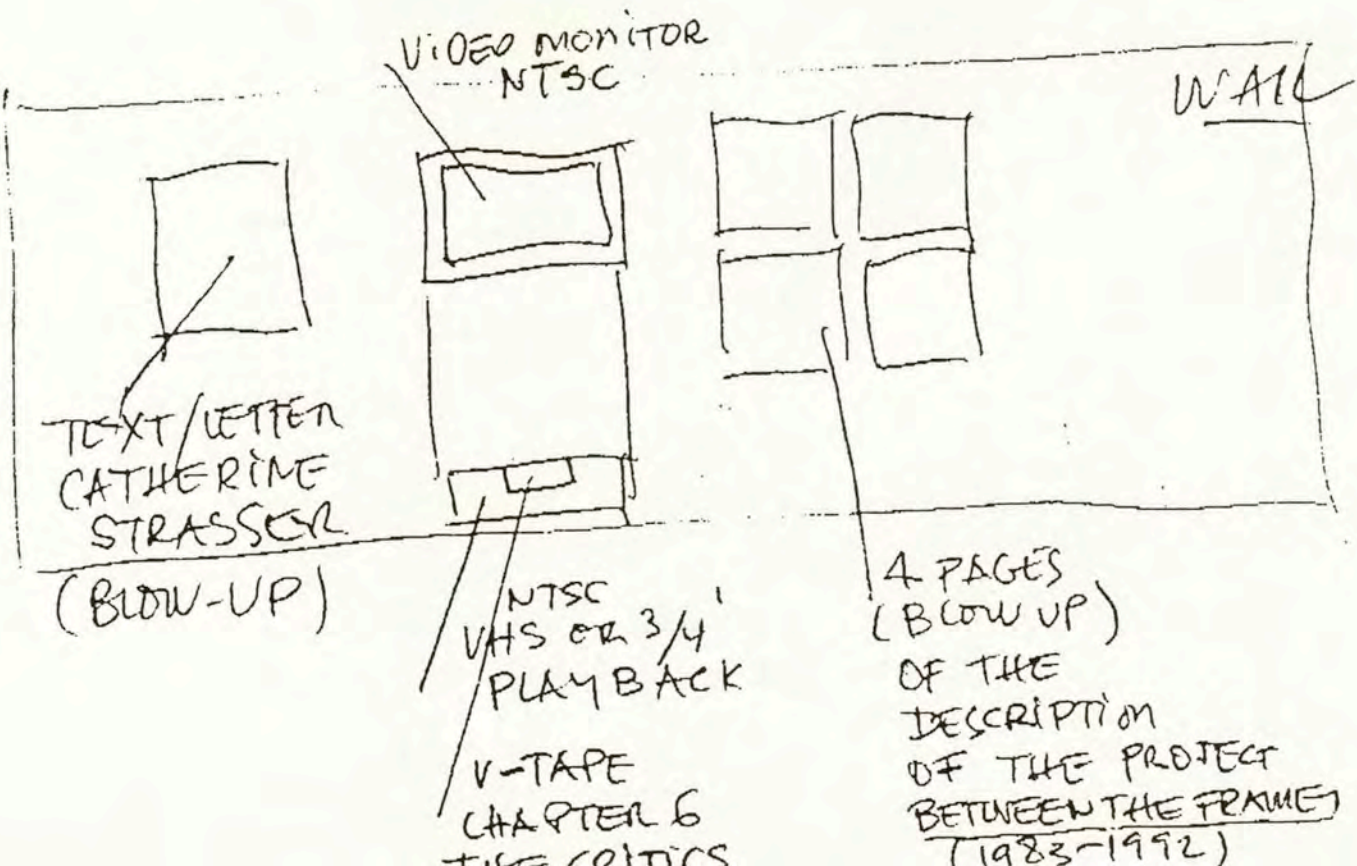 VIDEO MONITOR
NTSC
WALL
TEXT/LETTER
CATHERINE
STRASSER
(BLOW-UP)
NTSC
VHS OR 3/4'
PLAYBACK
V-TAPE
CHAPTER 6
THE CRITICS
4 PAGES
(BLOW UP)
OF THE
DESCRIPTION
OF THE PROJECT
BETWEEN THE FRAMES
(1983-1992)